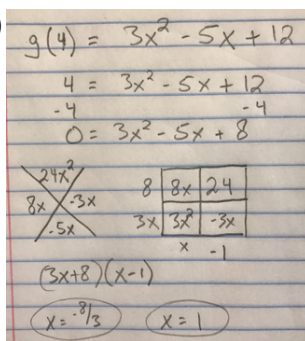 g(4) = 3x² - 5x + 12
4 = 3x² - 5x + 12
-4 -4
0 = 3x² - 5x + 8
24x²
8x -3x
-5x
8 8x 24
3x 3x² -3x
x -1
(3x+8)(x-1)
x = -8/3 x = 1